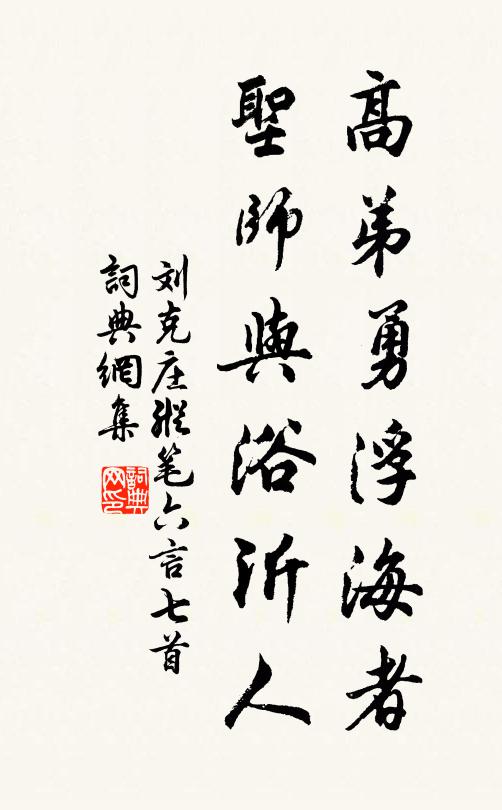 高弟勇浮海者
聖師與浴沂人
刘克庄縱笔六言七首
詞典網集
詞典网印